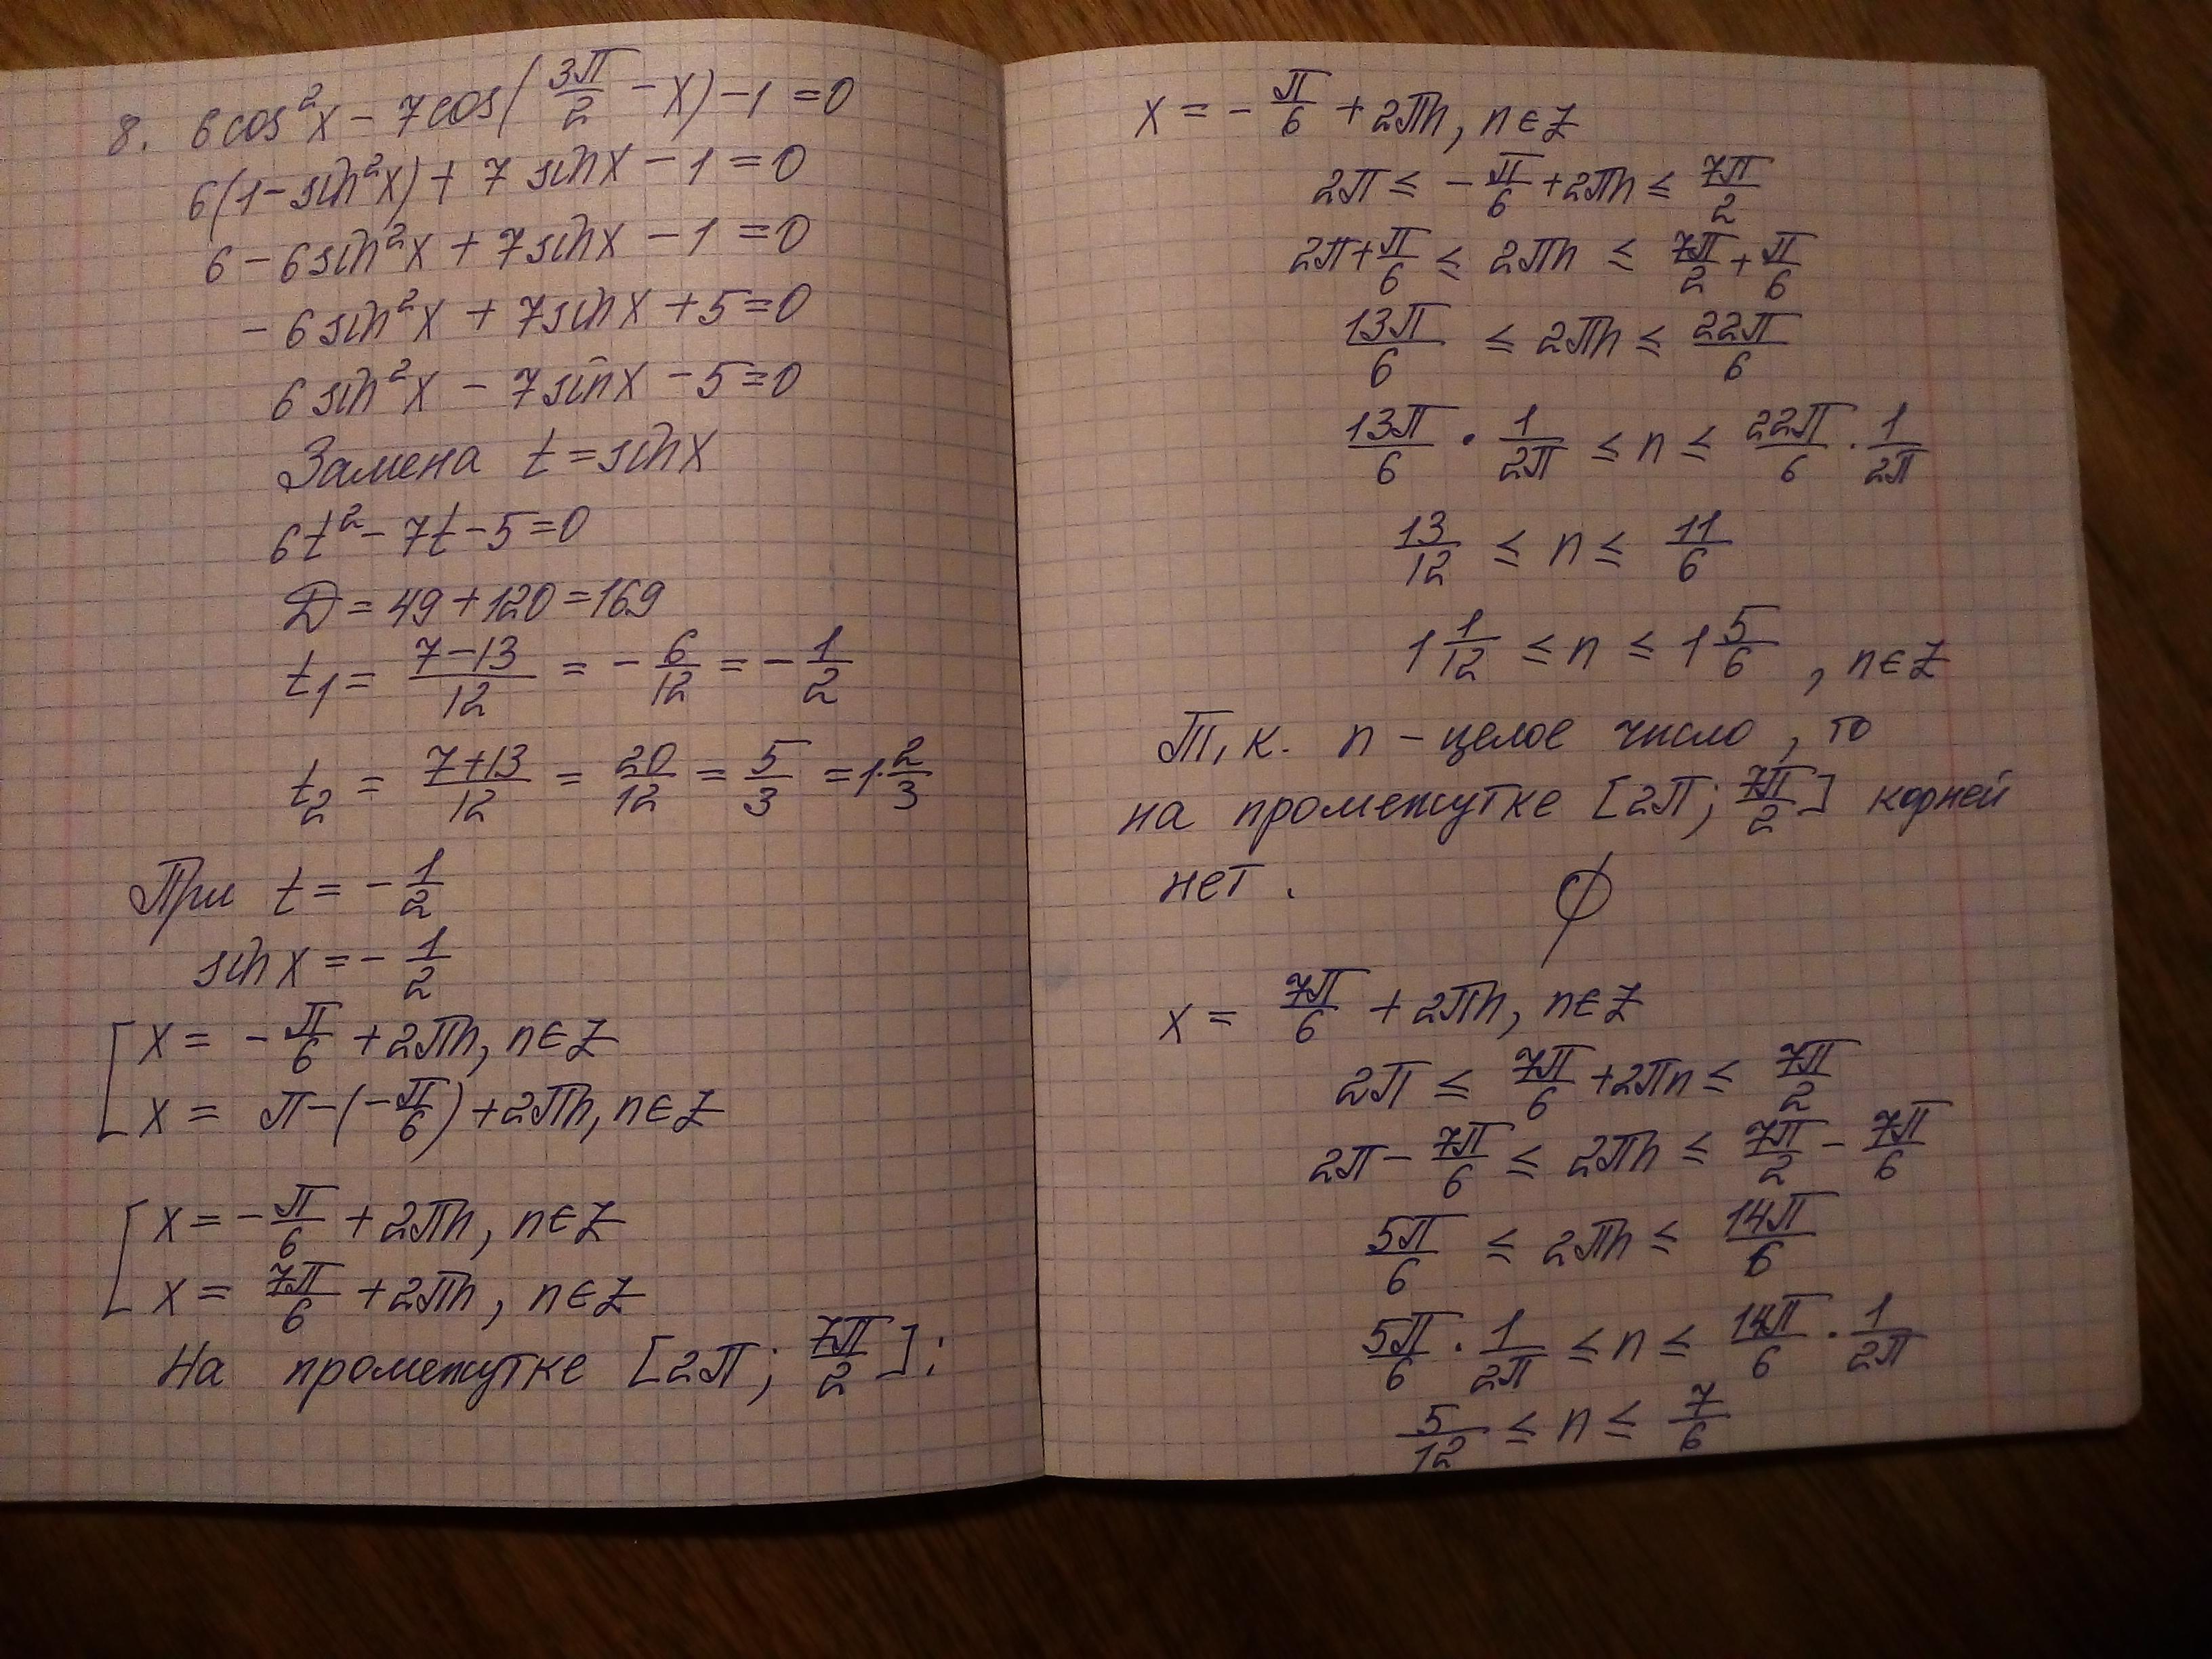 8. 6cos²x - 7cos(3π/2 - x) - 1 = 0
6(1 - sin²x) + 7 sinx - 1 = 0
6 - 6sin²x + 7sinx - 1 = 0
- 6sin²x + 7sinx + 5 = 0
6sin²x - 7sinx - 5 = 0
Замена t = sinx
6t² - 7t - 5 = 0
D = 49 + 120 = 169
t₁ = (7-13)/12 = - 6/12 = - 1/2
t₂ = (7+13)/12 = 20/12 = 5/3 = 1 2/3
При t = - 1/2
sinx = - 1/2
[ x = - π/6 + 2πn, n∈Z
x = π - (- π/6) + 2πn, n∈Z
[ x = - π/6 + 2πn, n∈Z
x = 7π/6 + 2πn, n∈Z
На промежутке [2π; 7π/2]:
x = - π/6 + 2πn, n∈Z
2π ≤ - π/6 + 2πn ≤ 7π/2
2π + π/6 ≤ 2πn ≤ 7π/2 + π/6
13π/6 ≤ 2πn ≤ 22π/6
13π/6 · 1/2π ≤ n ≤ 22π/6 · 1/2π
13/12 ≤ n ≤ 11/6
1 1/12 ≤ n ≤ 1 5/6, n∈Z
Т.к. n - целое число, то
на промежутке [2π; 7π/2] корней
нет. ∅
x = 7π/6 + 2πn, n∈Z
2π ≤ 7π/6 + 2πn ≤ 7π/2
2π - 7π/6 ≤ 2πn ≤ 7π/2 - 7π/6
5π/6 ≤ 2πn ≤ 14π/6
5π/6 · 1/2π ≤ n ≤ 14π/6 · 1/2π
5/12 ≤ n ≤ 7/6